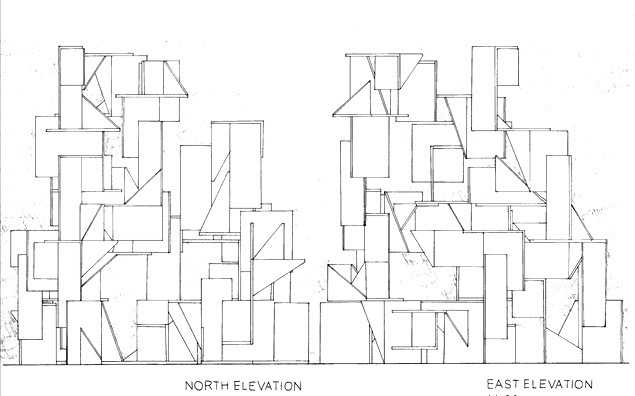 NORTH ELEVATION
EAST ELEVATION